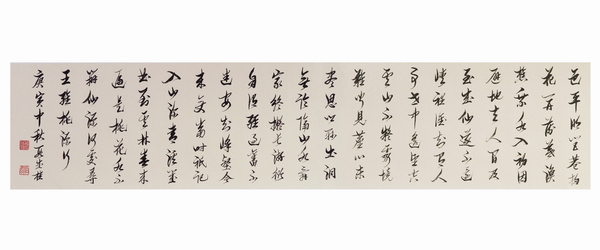 邑平明閭巷掃
花開薄暮漁
樵乘水入初因
避地去人間及
至成仙遂不還
峽裡誰知有人
事世中遙望空
雲山不疑靈境
難聞見塵心未
盡思鄉縣出洞
無論隔山水辭
家終擬長游衍
自謂經過舊不
迷安知峰壑今
來變當時衹記
入山深青溪幾
曲到雲林春來
遍是桃花水不
辨仙源何處尋
王維桃源行
庚寅中秋